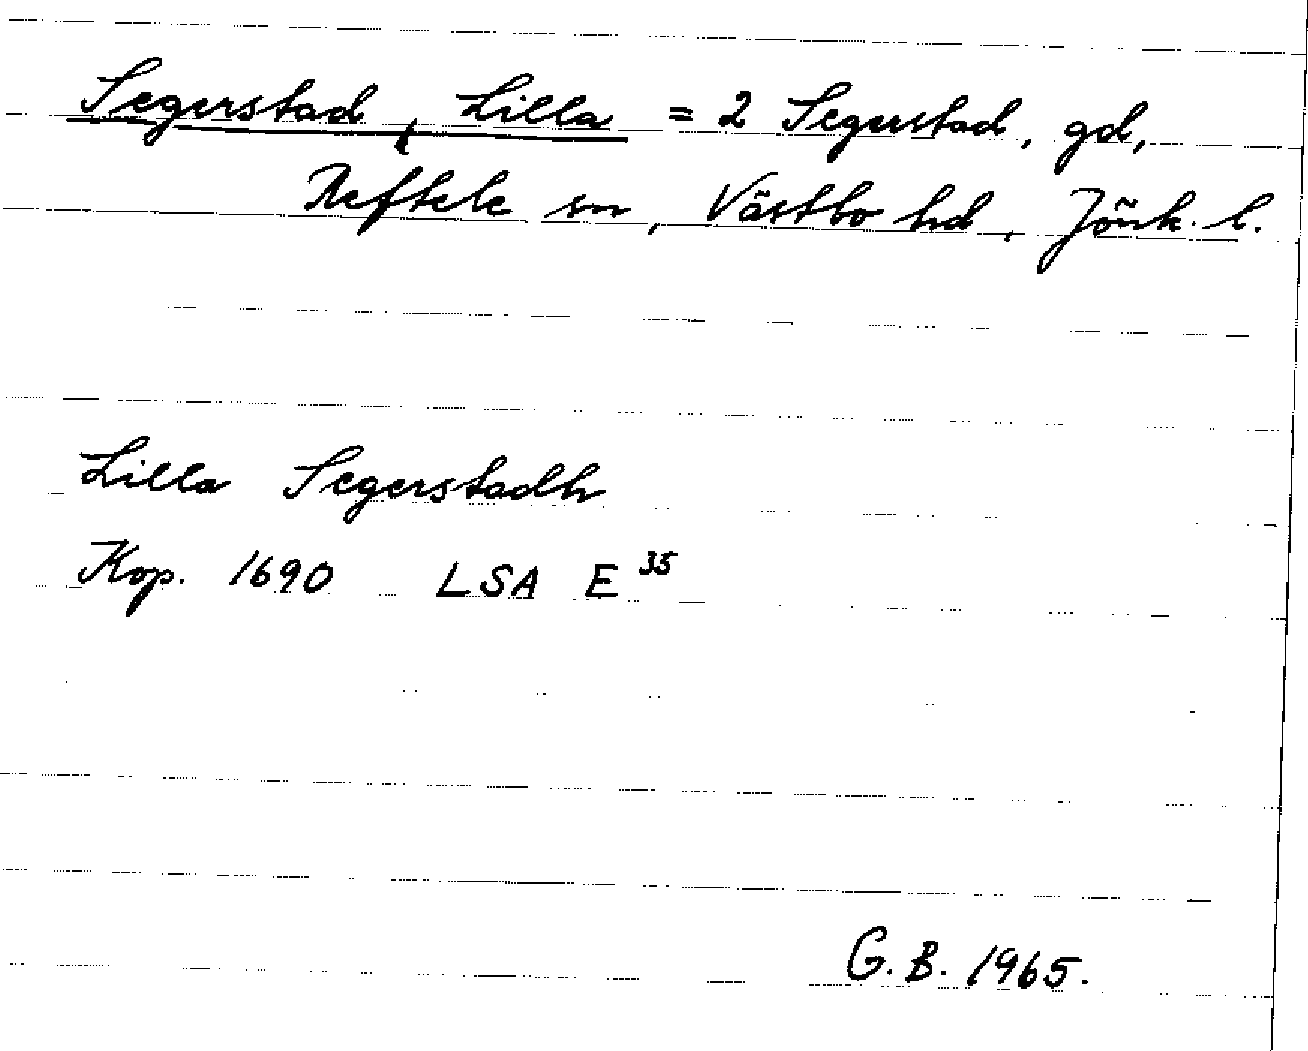 Segerstad, Lilla = 2 Segerstad, gd,
Reftele sn, Västbo hd, Jönk. l.
Lilla Segerstadh
Kop. 1690 LSA E 35
G. B. 1965.